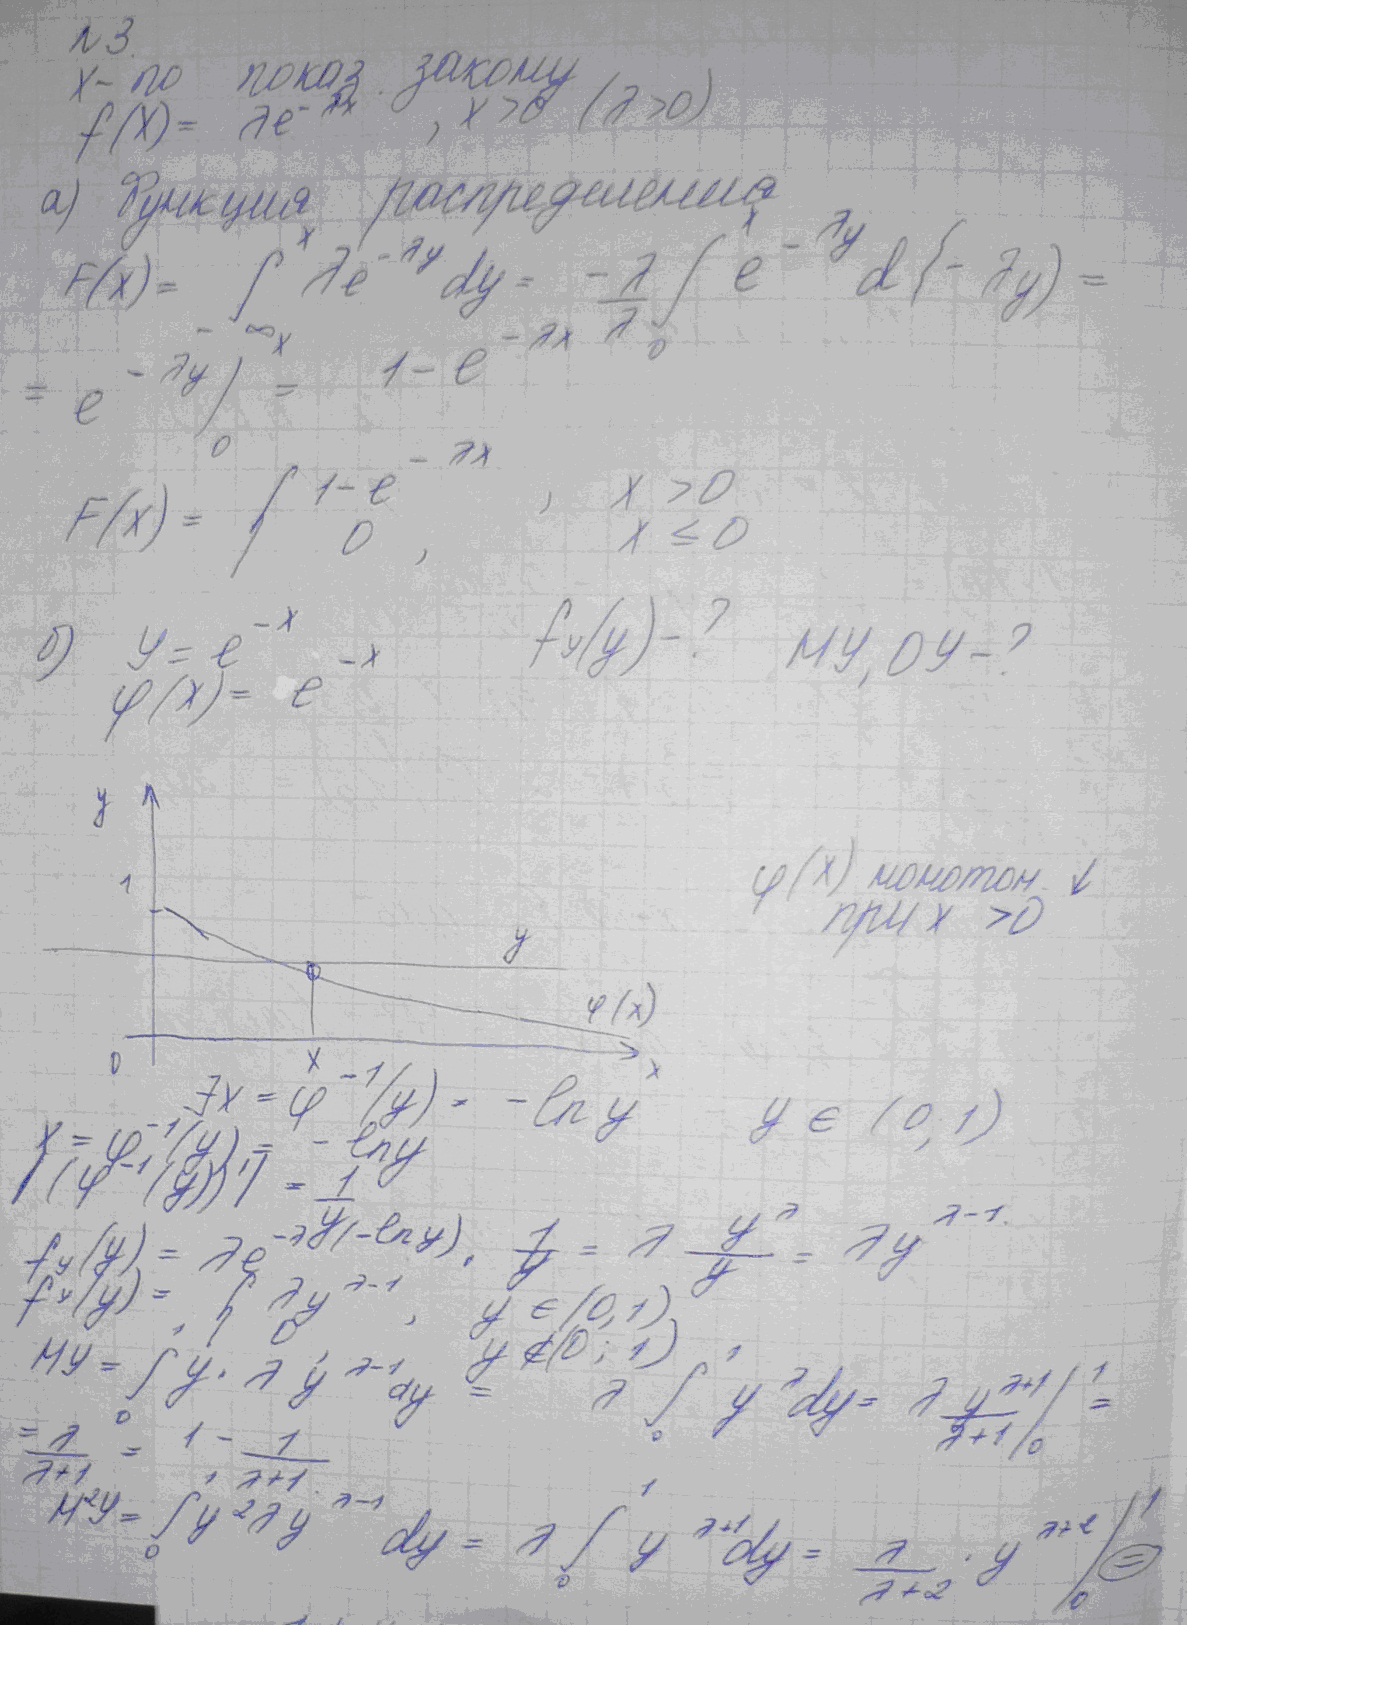 N3.
X - по показ. закону
f(X) = λe^{-λx}, x > 0 (λ > 0)
а) Функция распределения
F(x) = ∫_{-∞}^{x} λe^{-λy} dy = -λ/λ ∫_{0}^{x} e^{-λy} d{-λy) =
= e^{-λy} |_{0}^{x} = 1 - e^{-λx}
F(x) = { 1 - e^{-λx}, x > 0
0, x ≤ 0
б) y = e^{-x} f_y(y) - ? MY, DY - ?
φ(x) = e^{-x}
y
1
φ(x) монотон. ↓
при x > 0
y
φ(x)
0 x x
∃x = φ^{-1}(y) = -ln y y ∈ (0, 1)
x = φ^{-1}(y) = -ln y
|(φ^{-1}(y))'| = 1/y
f_y(y) = λe^{-λ(-ln y)} · 1/y = λ y^{λ}/y = λy^{λ-1}
f_y(y) = { λy^{λ-1}, y ∈ (0, 1)
0 y ∉ (0; 1)
MY = ∫_{0}^{1} y · λ y^{λ-1} dy = λ ∫_{0}^{1} y^{λ} dy = λ y^{λ+1}/λ+1 |_{0}^{1} =
= λ/λ+1 = 1 - 1/λ+1
M²Y = ∫_{0}^{1} y² λy^{λ-1} dy = λ ∫_{0}^{1} y^{λ+1} dy = λ/λ+2 · y^{λ+2} |_{0}^{1} =